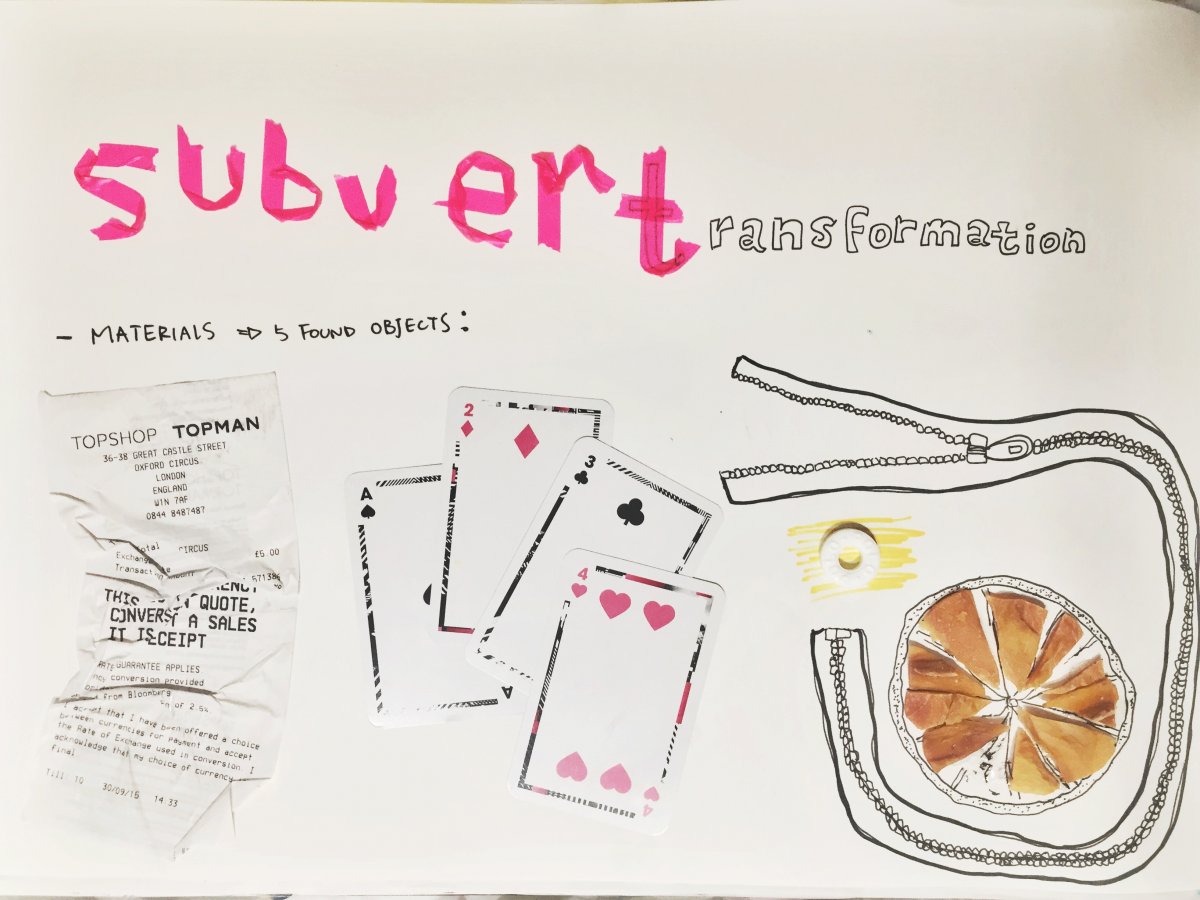 subvert
ransformation
- MATERIALS ⇒ 5 FOUND OBJECTS:
TOPSHOP TOPMAN
36-38 GREAT CASTLE STREET
OXFORD CIRCUS
LONDON
ENGLAND
W1N 7AF
0844 8487487
otal CIRCUS
Exchang £5.00
Transact
THIS QUOTE,
CONVERS A SALES
IT IS CEIPT
GUARANTEE APPLIES
conversion provided
from Bloomberg
of 2.5%
accept that I have been offered a choice
between currencies for payment and accept
the Rate of Exchange used in conversion. I
acknowledge that my choice of currency
final
Till: 10 30/09/15 14:33
A
2
3
4
A
4